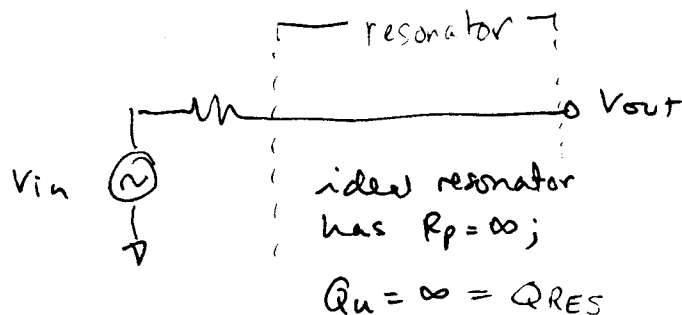 resonator
Vout
Vin
ideal resonator
has Rp = ∞;
Qu = ∞ = QRES